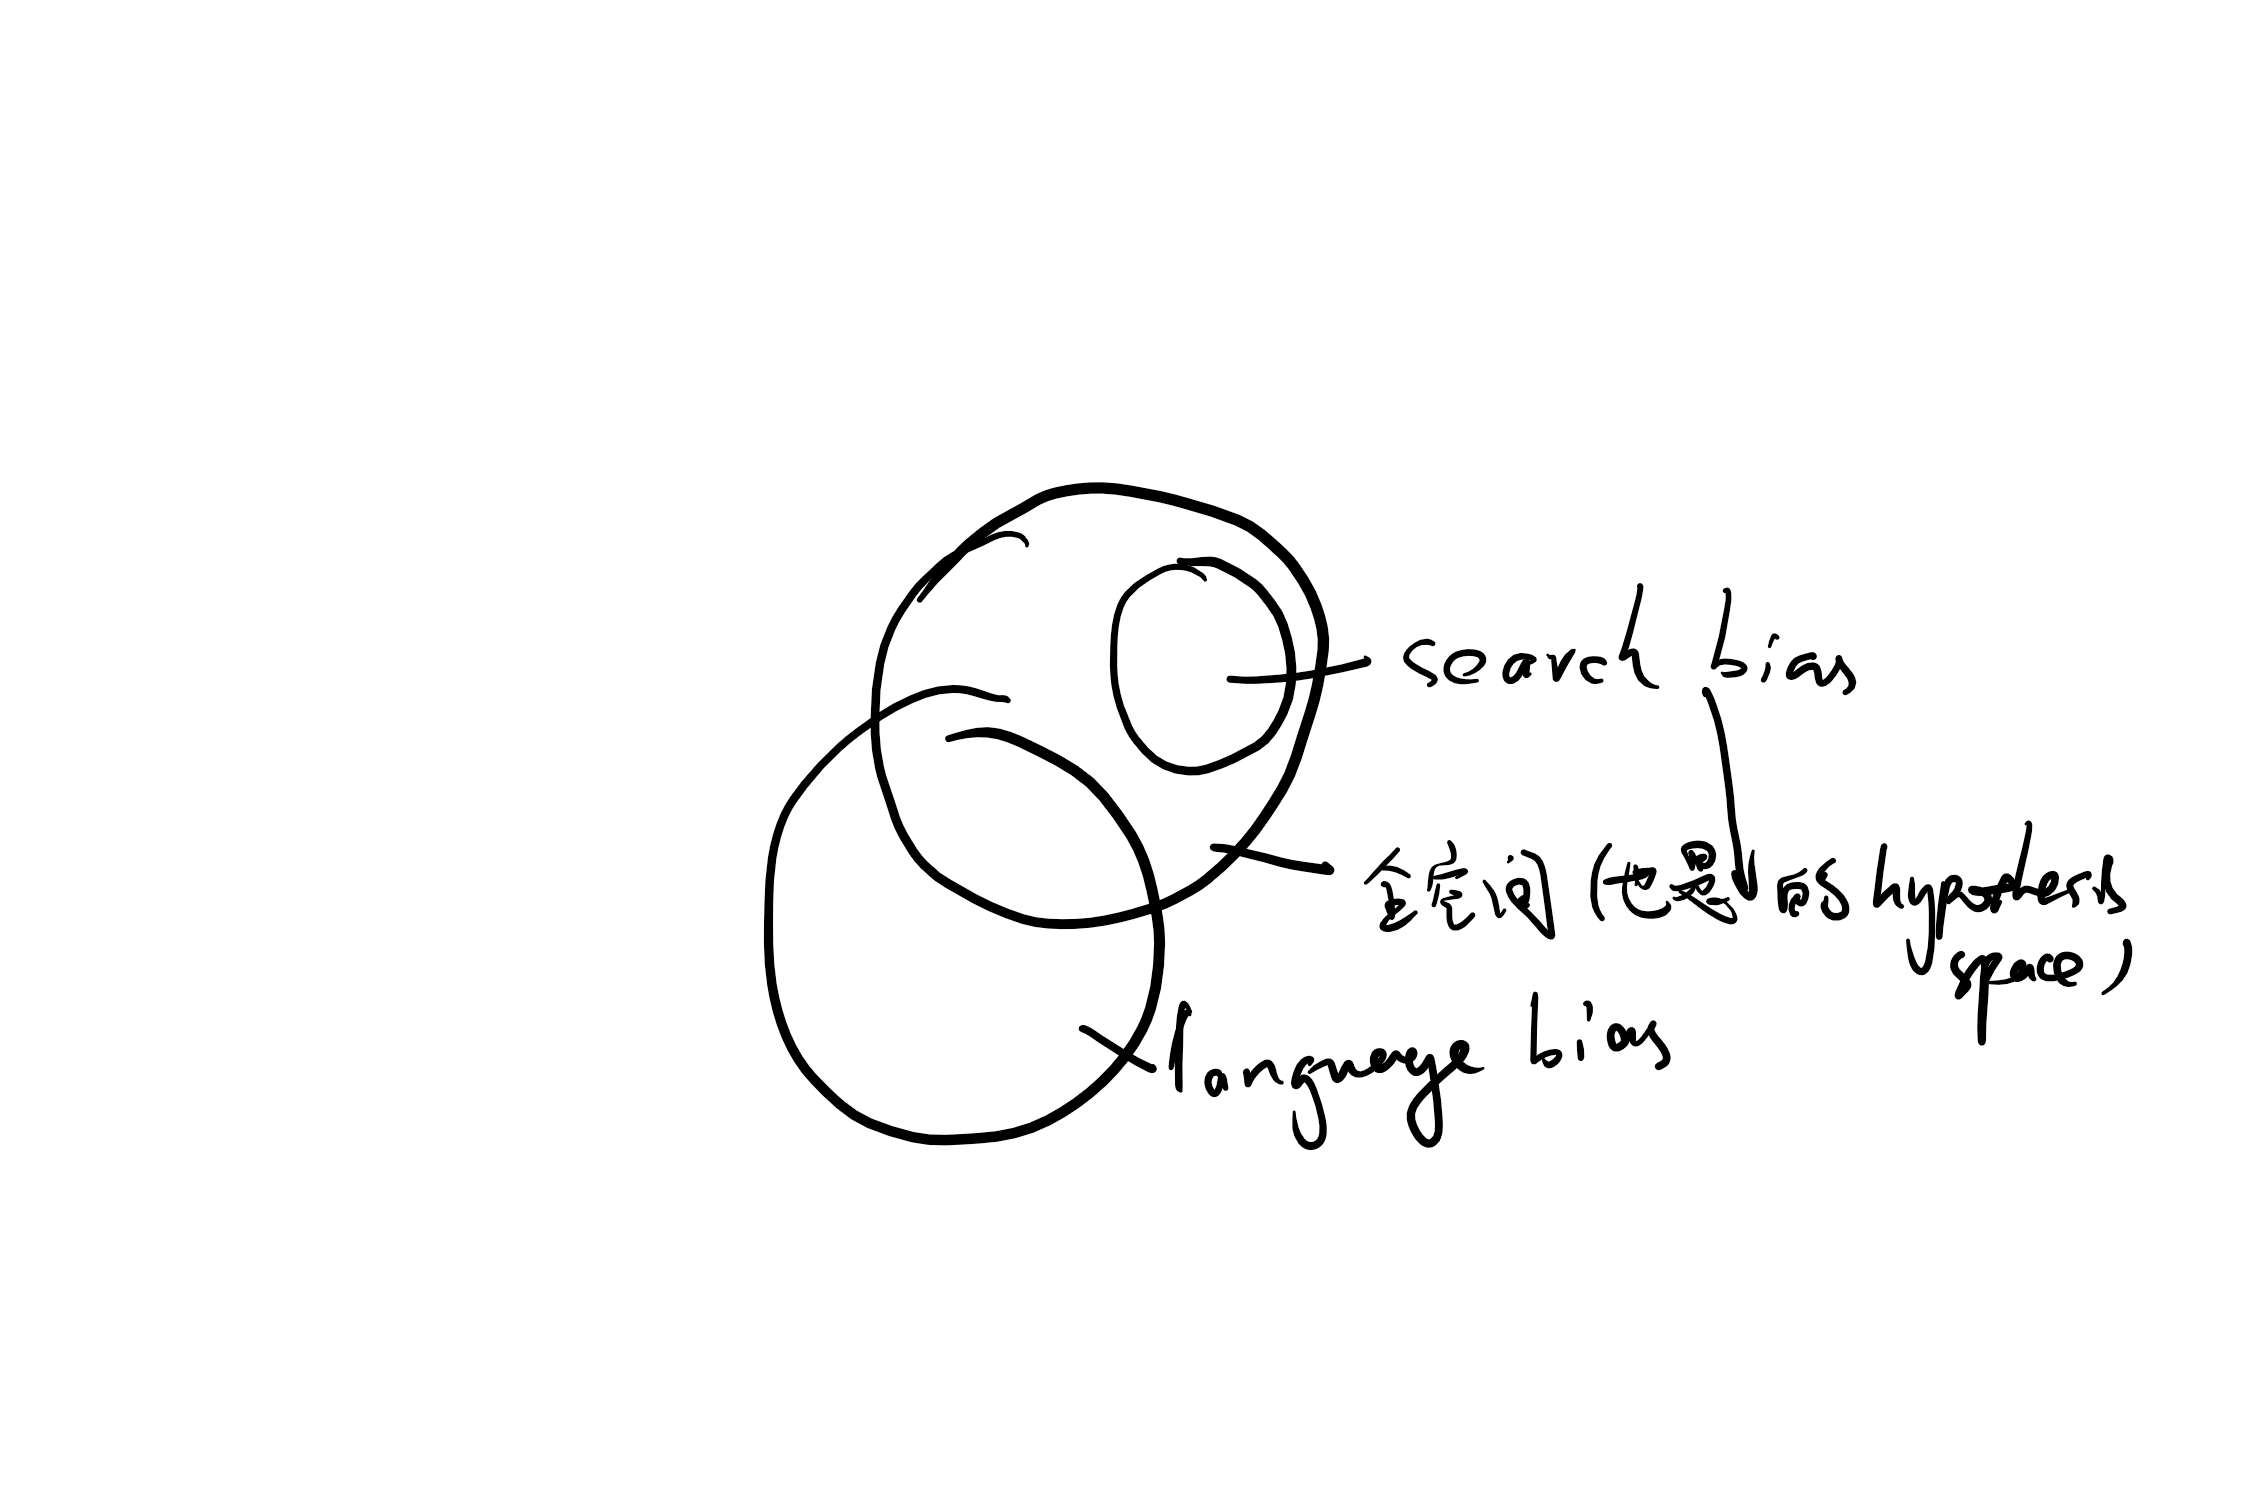 search bias
全空间 (也是 的 hypothesis
space)
language bias